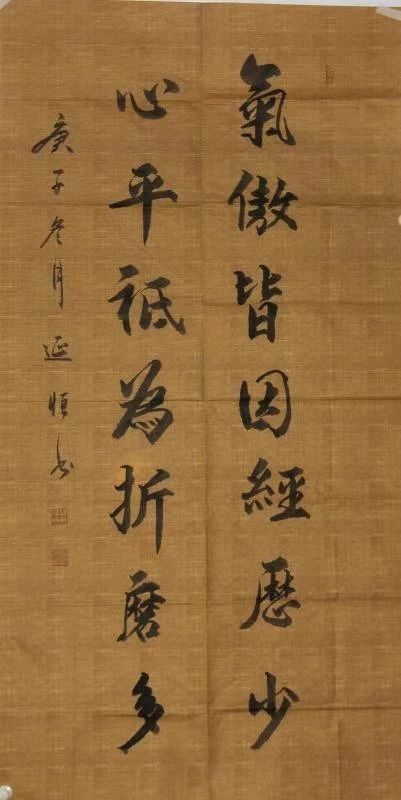 氣傲皆因經歷少
心平祗為折磨多
庚子冬月延恒书